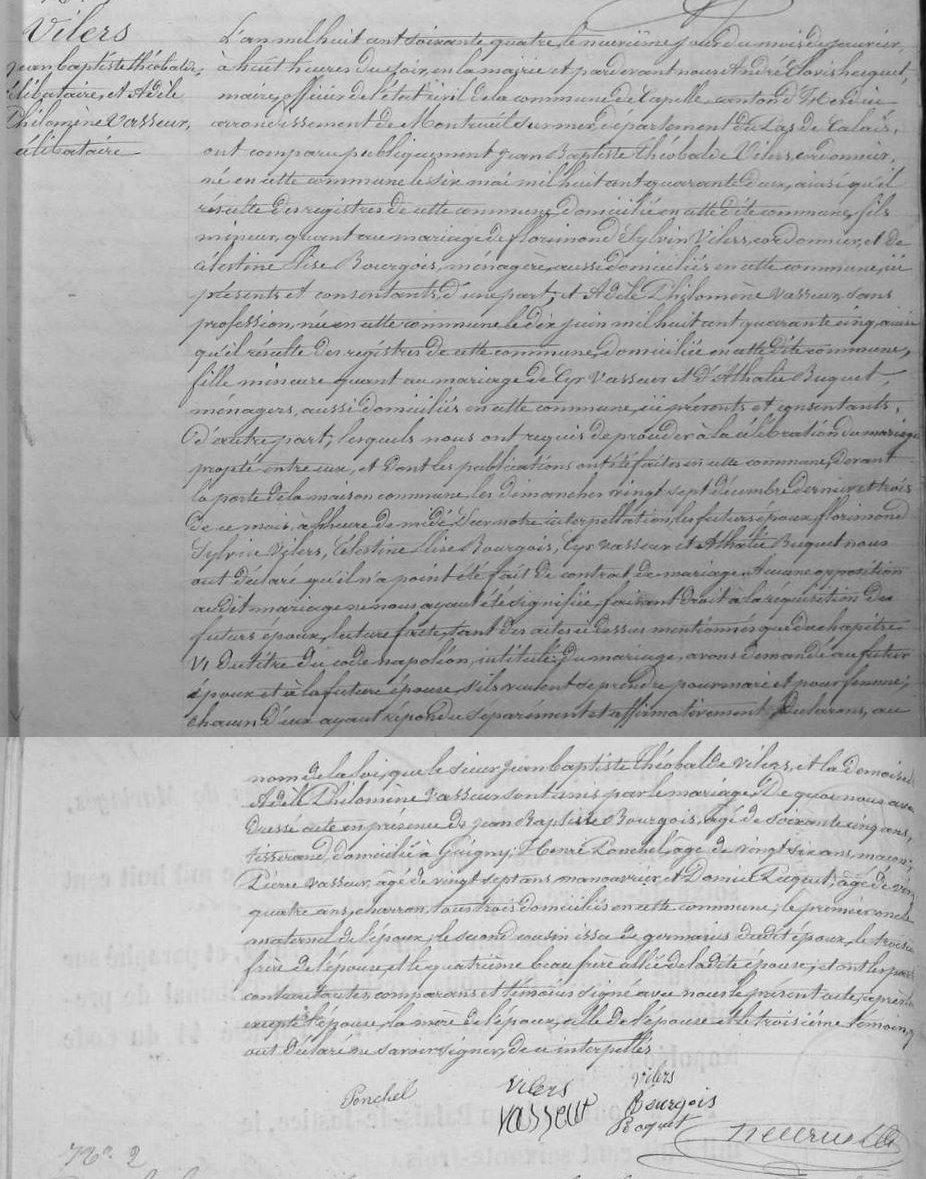 Vilers
Jean baptiste théobalde,
célibataire, et Adèle
Philomène Vasseur,
célibataire
L'an mil huit cent soixante quatre, le neuvième jour du mois de janvier,
à huit heures du soir, en la mairie et pardevant nous André Clovis
maire, officier de l'état civil de la commune de Capelle, canton d'Hesdin
arrondissement de Montreuil sur mer, département du Pas de Calais,
ont comparu publiquement Jean Baptiste Théobalde Vilers, cordonnier,
né en cette commune le six mai mil huit cent quarante deux, ainsi qu'il
résulte des registres de cette commune, domicilié en cette dite commune, fils
mineur, quant au mariage de florimond Sylvin Vilers, cordonnier, et de
Célestine Elise Bourgois, ménagère, aussi domiciliés en cette commune, ici
présents et consentants, d'une part; et Adèle Philomène Vasseur, sans
profession, née en cette commune le dix juin mil huit cent quarante cinq, ainsi
qu'il résulte des registres de cette commune, domiciliée en cette dite commune,
fille mineure quant au mariage de Cyr Vasseur et d'Athalie Buquet,
ménagers, aussi domiciliés en cette commune, ici présents et consentants,
d'autre part; lesquels nous ont requis de procéder à la célébration du mariage
projeté entre eux, et dont les publications ont été faites en cette commune, devant
la porte de la maison commune les dimanches vingt sept décembre dernier et trois
de ce mois, à l'heure de midi. Sur notre interpellation, les futurs époux, florimond
Sylvin Vilers, Célestine Elise Bourgois, Cyr Vasseur et Athalie Buquet nous
ont déclaré qu'il n'a point été fait de contrat de mariage. Aucune opposition
audit mariage ne nous ayant été signifiée, faisant droit à la réquisition des
futurs époux, lecture faite, tant des actes ci dessus mentionnés que du chapitre
VI du titre du code napoléon, intitulé: du mariage, avons demandé au futur
époux et à la future épouse s'ils veulent se prendre pour mari et pour femme;
chacun d'eux ayant répondu séparément et affirmativement, déclarons, au
nom de la loi, que le sieur Jean baptiste théobalde Vilers, et la demoiselle
Adèle Philomène Vasseur sont unis par le mariage. De quoi nous avons
dressé acte en présence de Jean Baptiste Bourgois, âgé de soixante cinq ans,
tisserand, domicilié à Guigny; Henri Ponchel, âgé de vingt six ans, maçon;
Pierre Vasseur, âgé de vingt sept ans, manouvrier, et âgé de vingt
quatre ans, charron, tous trois domiciliés en cette commune; le premier oncle
maternel de l'époux; le second cousin issu de germains dudit époux, le troisième
frère de l'épouse, et le quatrième beau frère allié de la dite épouse; et ont les parties
contractantes, comparans et témoins signé avec nous le présent acte, après
excepté l'épouse, la mère de l'époux, celle de l'épouse et le troisième témoin, qui
ont déclaré ne savoir signer, de ce interpellés
Ponchel
Vilers
Vilers
Vasseur
Bourgois
N°. 2